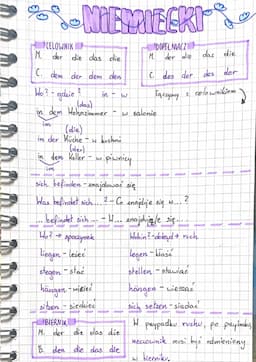 NIEMIECKI
CELOWNIK
M. der die das die
C. dem der dem den
DOPEŁNIACZ
M. der die das die
des der des der
Wo? - gdzie? in - w
(das)
in dem Wohnzimmer - w salonie
im
(die)
in der Küche - w kuchni
(der)
in dem Keller - w piwnicy
im
sich befinden - znajdować się
Was befindet sich ...? - Co znajduje się w...?
... befindet sich ... - W... znajduje się ...
Wo? → spoczynek
Wohin? - dokąd? → ruch
liegen - leżeć
legen - kłaść
stegen - stać
stellen - stawiać
hängen - wisieć
hängen - wieszać
sitzen - siedzieć
sich setzen - siadać
BIERNIK
M. der die das die
B. den die das die
W przypadku ruchu, po przyimku
rzeczownik musi być odmieniony
w bierniku.